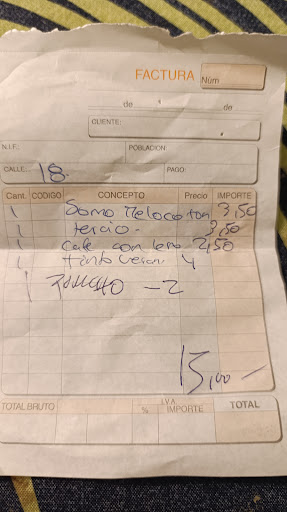 FACTURA Núm
de de
CLIENTE:
N.I.F.: POBLACION:
CALLE: 18. PAGO:
Cant. CODIGO CONCEPTO Precio IMPORTE
1 Melocoton 3,50
1 tercio 3,50
1 cafe con 2,50
1 tinto veran 4
1 - 2
15,00 -
TOTAL BRUTO % I.V.A. IMPORTE TOTAL